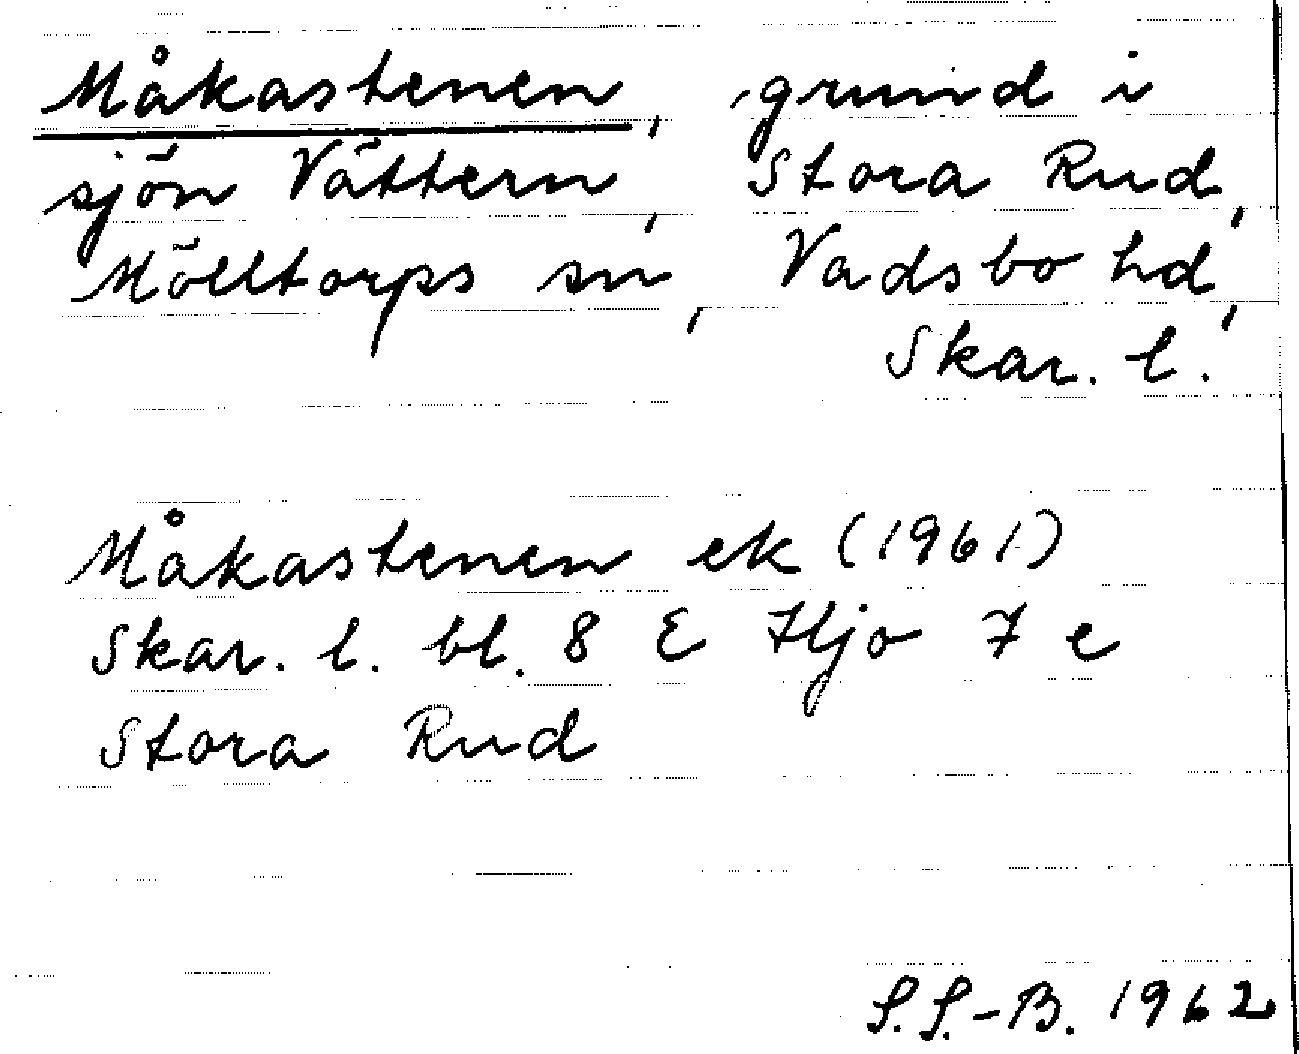 Måkastenen, grund i
sjön Vättern, Stora Rud,
Mölltorps sn, Vadsbo hd,
Skar. l.
Måkastenen ek (1961)
Skar. l. bl. 8 E Hjo 7 e
Stora Rud
S.S.-B. 1962